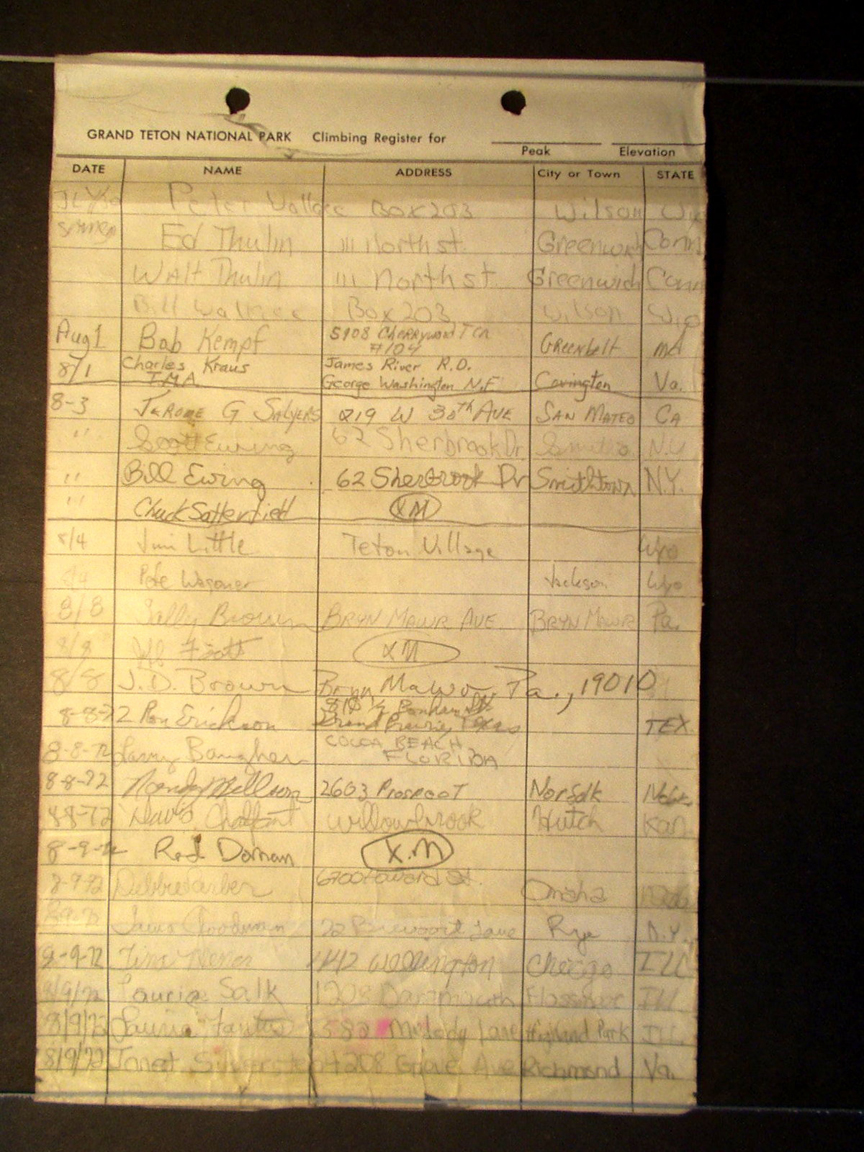 GRAND TETON NATIONAL PARK Climbing Register for
Peak Elevation
DATE NAME ADDRESS City or Town STATE
Peter Wallace Box 203 Wilson
Ed Thulin 111 North st. Greenwich Conn
Walt Thulin 111 North st Greenwich Conn
Bill Wallace Box 203 Wilson
Aug 1 Bob Kempf 5908 Cherrywood #104 Greenbelt Md
8/1 Charles Kraus James River R.D.
I.M.A. George Washington N.F Covington Va.
8-3 Jerome G Salyers 219 W 30th Ave San Mateo CA
" Scott Ewing 62 Sherbrook Dr N.Y
" Bill Ewing 62 Sherbrook Dr Smithtown N.Y.
" Chuck Satterfield XM
8/4 Jim Little Teton Village Wyo
Pete Wagoner Jackson Wyo
8/8 Sally Brown Bryn Mawr Ave Bryn Mawr Pa.
8/8 XM
8/8 J.D. Brown Bryn Mawr, Pa., 19010
8-8-72 Ron Erickson Grand Prairie, Texas TEX.
8-8-72 Larry Baugher COCOA BEACH
FLORIDA
8-8-72 2603 Prospect Norfolk
8-8-72 Willowbrook Hutch Kan
8-9-72 Rod Dornan X.M
8-9-72 Debbie Omaha
Goodman Lane Rye N.Y.
8-9-72 442 Wellington Chicago ILL
8/9/72 Laurie Salk 1208 Dartmouth Flossmoor Ill.
8/9/72 Laurie Melody Lane Highland Park Ill
8/9/72 Janet Silverstein 4208 Grove Ave Richmond Va.